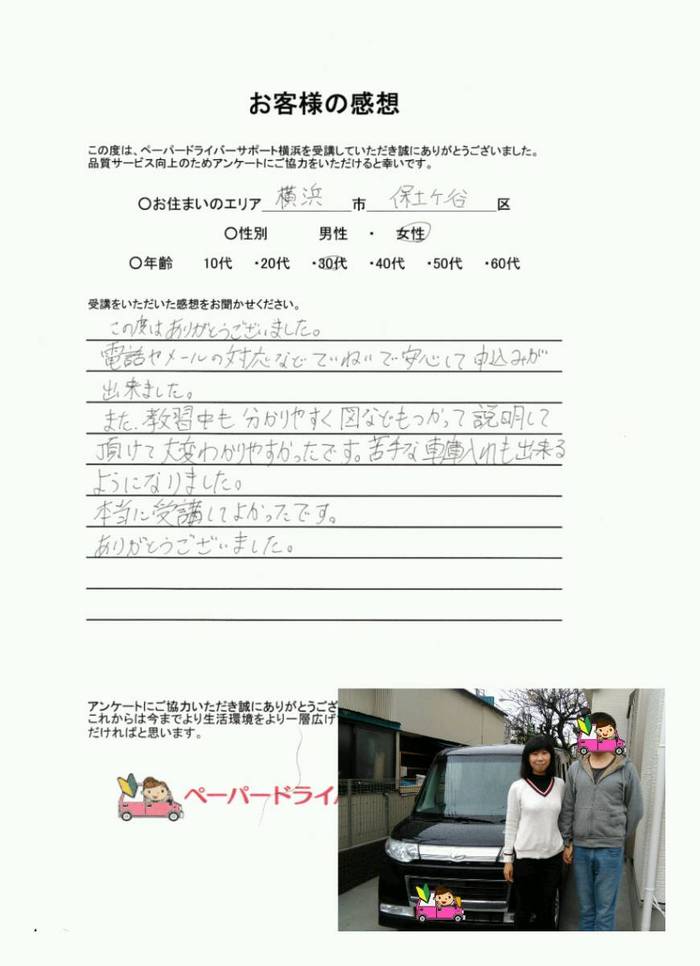 お客様の感想
この度は、ペーパードライバーサポート横浜を受講していただき誠にありがとうございました。
品質サービス向上のためアンケートにご協力をいただけると幸いです。
〇お住まいのエリア 横浜 市 保土ケ谷 区
〇性別 男性 ・ 女性
〇年齢 10代 ・20代 ・30代 ・40代 ・50代 ・60代
受講をいただいた感想をお聞かせください。
この度はありがとうございました。
電話やメールの対応などていねいで安心して申込みが
出来ました。
また、教習中も分かりやすく図などもつかって説明して
頂けて大変わかりやすかったです。苦手な車庫入れも出来る
ようになりました。
本当に受講してよかったです。
ありがとうございました。
アンケートにご協力いただき誠にありがとうござ
これからは今までより生活環境をより一層広げ
だければと思います。
ペーパードライ